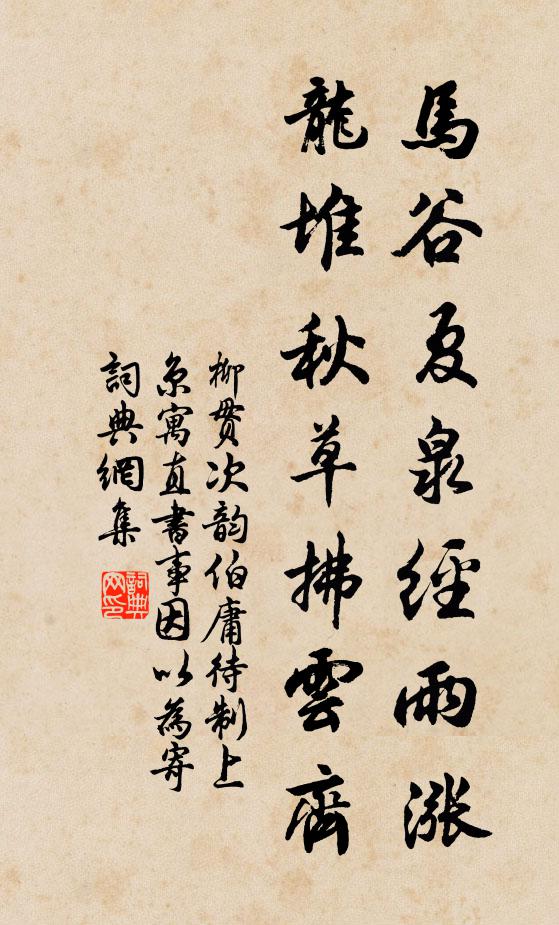 馬谷夏泉經雨漲
龍堆秋草拂雲齊
柳貫次韵伯庸待制上
京寓直書事因以為寄
詞典網集
詞典網印